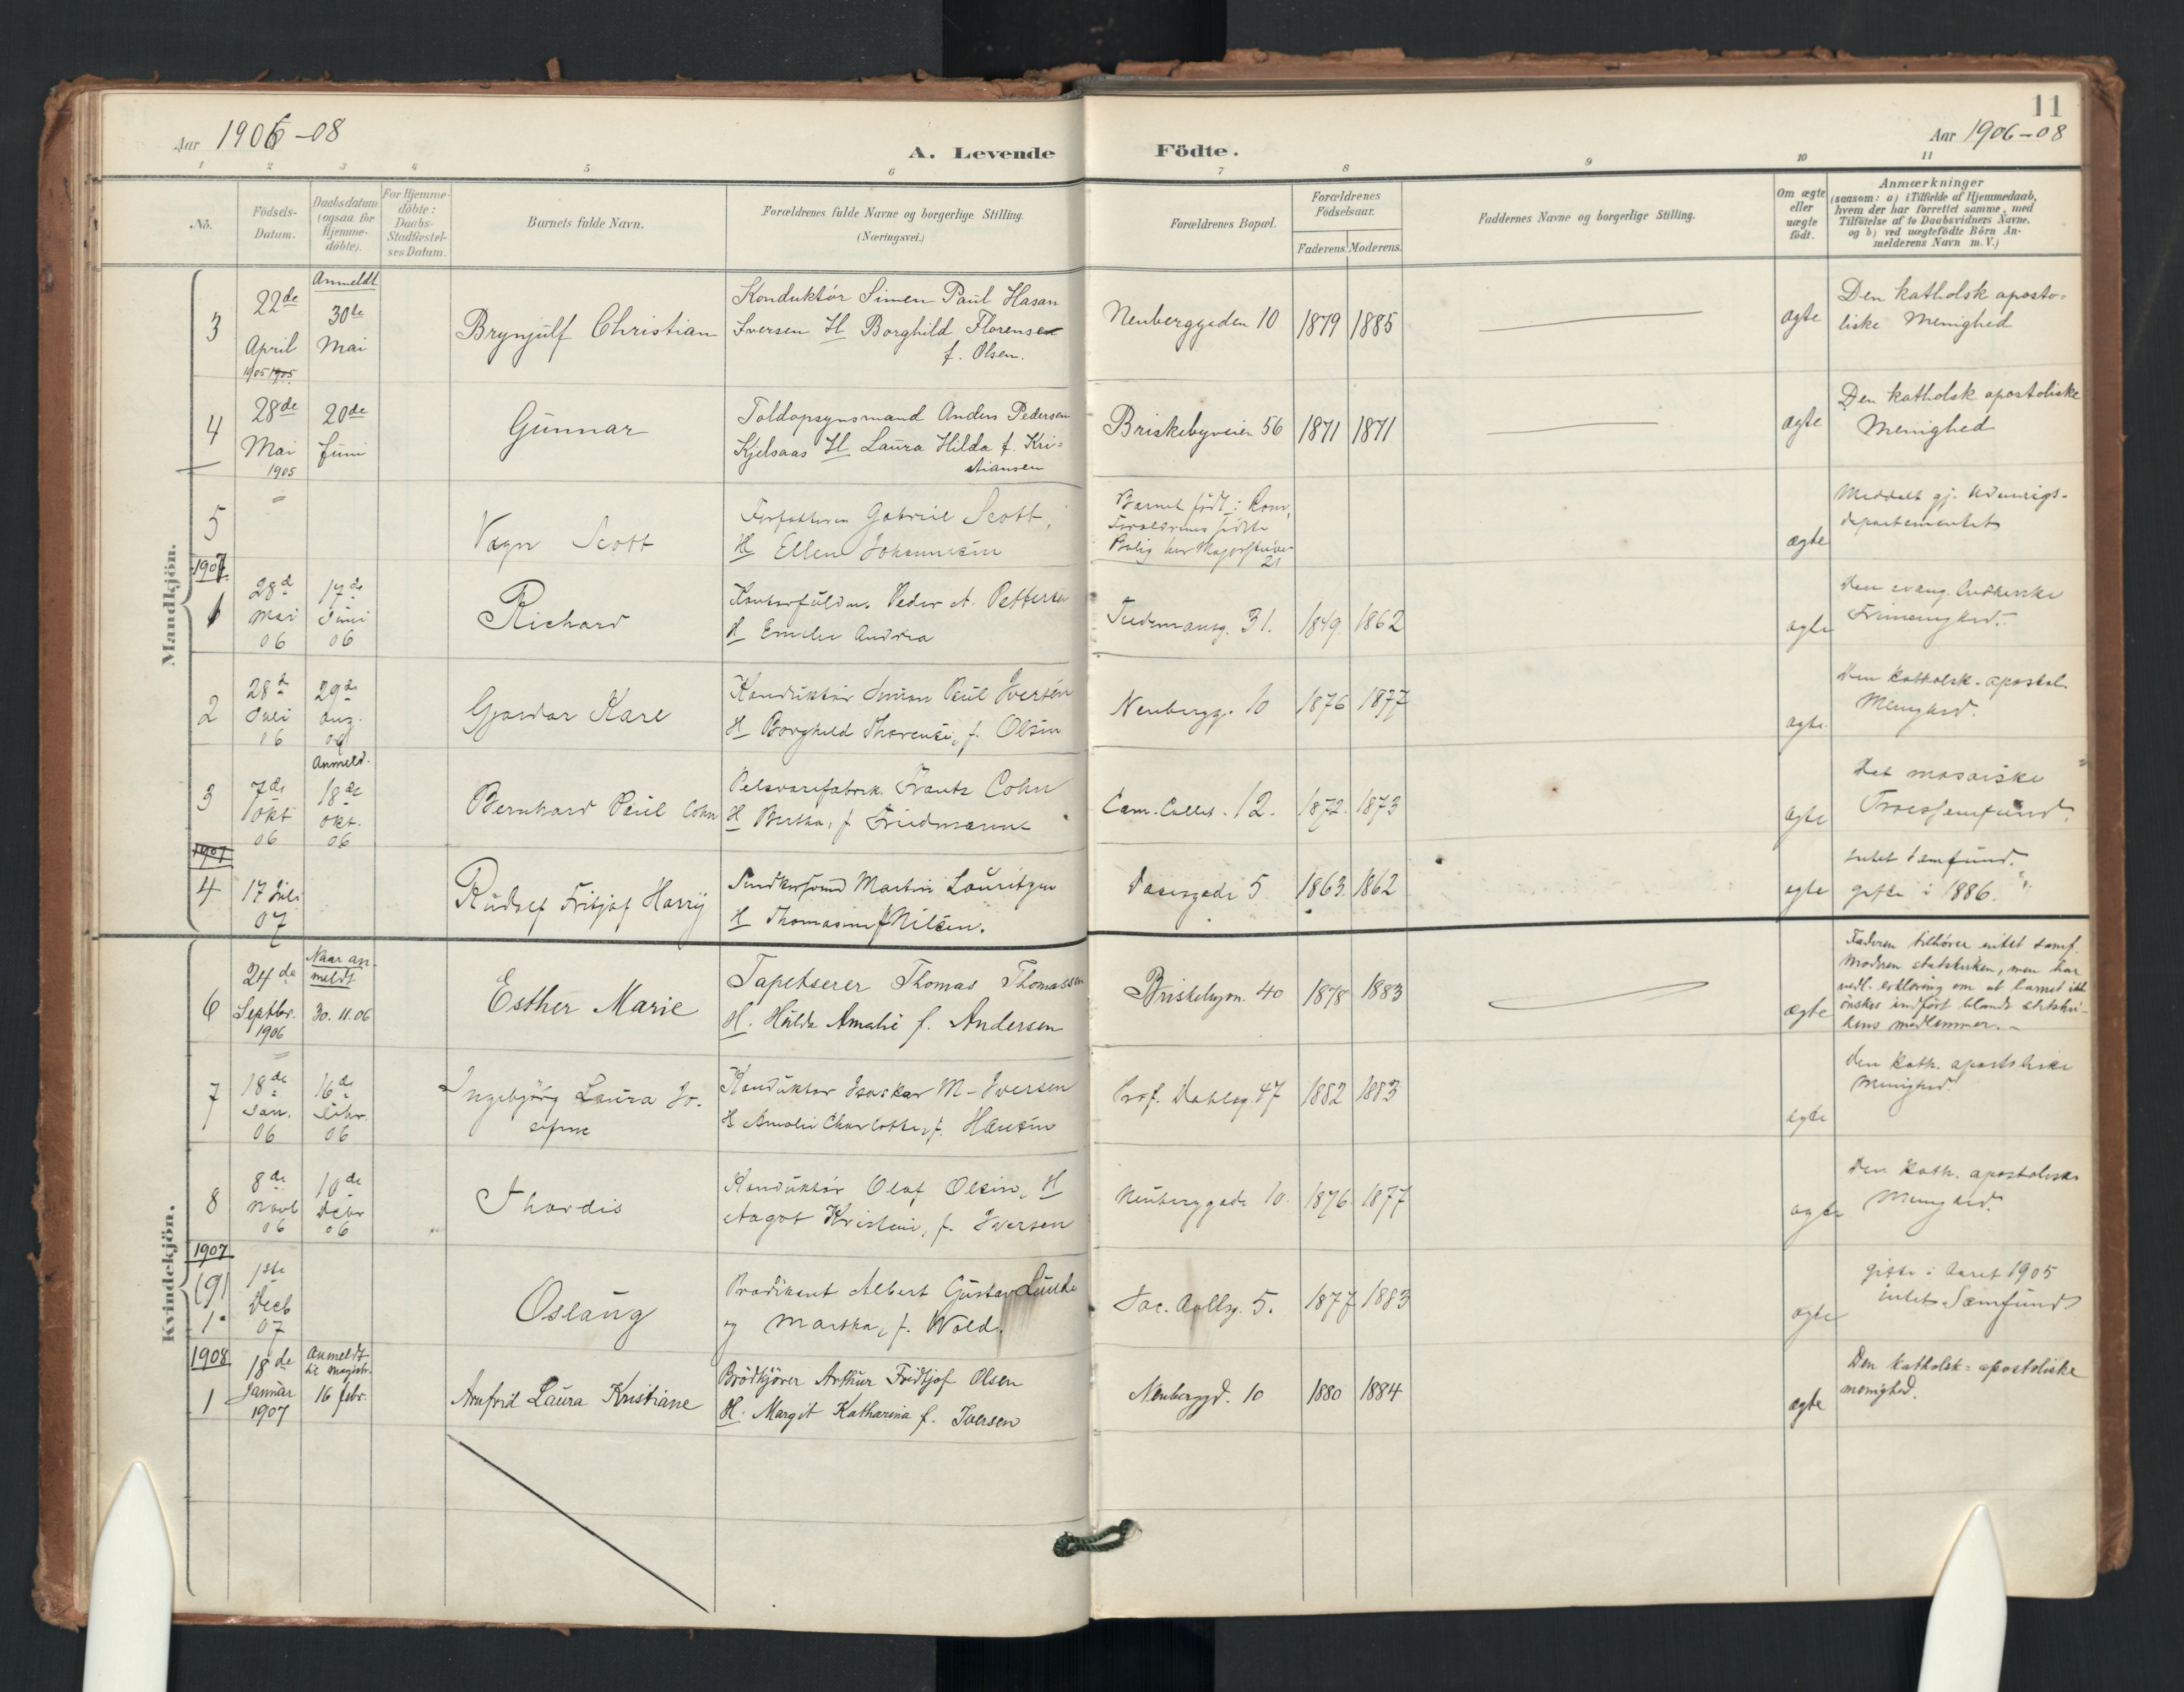 Aar 1906-08
A. Levende Födte.
11
Aar 1906-08
1 2 3 4 5 6 7 8 9 10 11
No.
Födsels-Datum.
Daabsdatum (ogsaa for Hjemme-döbte).
For Hjemme-döbte: Daabs-Stadfæstel-ses Datum.
Barnets fulde Navn.
Forældrenes fulde Navne og borgerlige Stilling.
(Næringsvei.)
Forældrenes Bopæl.
Forældrenes Födselsaar.
Faderens. Moderens.
Faddernes Navne og borgerlige Stilling.
Om ægte eller uægte födt.
Anmærkninger
(saasom: a) i Tilfælde af Hjemmedaab,
hvem der har forrettet samme, med
Tilföielse af to Daabsvidners Navne,
og b) ved uægtefödte Börn An-
melderens Navn m. V.)
Mandkjön.
3
22de
April
1905 1905
Anmeldt
30te
Mai
Brynjulf Christian
Konduktör Simen Paul Hasan
Iversen H Borghild Florense
f. Olsen.
Neuberggaden 10
1879 1885
ægte
Den katholsk aposto=
liske Menighed
4
28de
Mai
1905
20de
Juni
Gunnar
Toldopsynsmand Anders Pedersen
Kjelsaas H Laura Hilda f. Kri=
stiansen
Briskebyveien 56
1871 1871
ægte
Den katholsk apostoliske
Menighed
5
Vagn Scott
Forfatteren Gabriel Scott,
H Ellen Johannesen
Barnet födt i Rom,
Forældrenes sidste
Bolig her Majorstuvei
21
ægte
Meddelt gj. Udenrigs-
departementet
1907
1
28d
Mai
06
17de
Juni
06
Richard
Kontorfuldm. Peder A. Pettersen
H Emilie Andrea
Tidemansg. 31.
1849 1862
ægte
Den evang. lutherske
Frimenighed.
2
28d
Juli
06
29de
Aug.
06
Gjordar Kare
Konduktör Simon Paul Iversen
H Borghild Thorense, f. Olsen
Neubergg. 10
1876 1877
ægte
Den katholsk-apostol.
Menighed.
3
7de
Okt
06
Anmeld.
18de
Okt.
06
Bernhard Paul Cohn
Pelsvarefabrik. Frantz Cohn
H Bertha, f Friedmann
Cam. Collet. 12.
1872 1873
ægte
Det mosaiske
Troessamfund.
1907
4
17 Juli
07
Rudolf Fritjof Harry
Snedkersvend Martin Lauritzen
H Thomasine f Nilsen.
5
1863. 1862
ægte
intet Samfund.
gifte i 1886.
Kvindekjön.
6
24de
Septbr.
1906
Naar an-
meldt
30.11.06
Esther Marie
Tapetserer Thomas Thomassen
H. Hulda Amalie f. Andersen
Briskebyvn. 40
1878 1883
ægte
Faderen tilhörer intet samf.
Moderen statskirken, men har
vedl. erklæring om at barnet ikke
önskes indfört blandt statskir-
kens medlemmer.
7
18de
Jan.
06
16de
Febr.
06
Ingebjörg Laura Jo-
sefine
Konduktör Isaskar M- Iversen
H Amalie Charlotte, f. Hansen
Prof. Dahlsg. 47
1882 1883
ægte
Den kath. apostoliske
Menighed.
8
8de
Novb
06
10de
Debr
06
Thordis
Konduktör Olaf Olsen, H
Aagot Kristine, f. Iversen
Neuberggade 10.
1876 1877
ægte
Den kath. apostoliske
Menighed.
1907
(9)
1.
1ste
Decb
07
Oslaug
Prædikant Albert Gustav Lunde
og Martha, f. Wold.
Jac. Aallsg. 5.
1877 1883
ægte
gifte i Aaret 1905
intet Samfund
1908
1
18de
Januar
1907
Anmeldt
til magistr.
16 febr.
Arnfrid Laura Kristiane
Brödkjörer Arthur Fridtjof Olsen
H. Margit Katharina f. Iversen
Neuberggd. 10
1880 1884
ægte
Den katholsk=apostoliske
menighed.